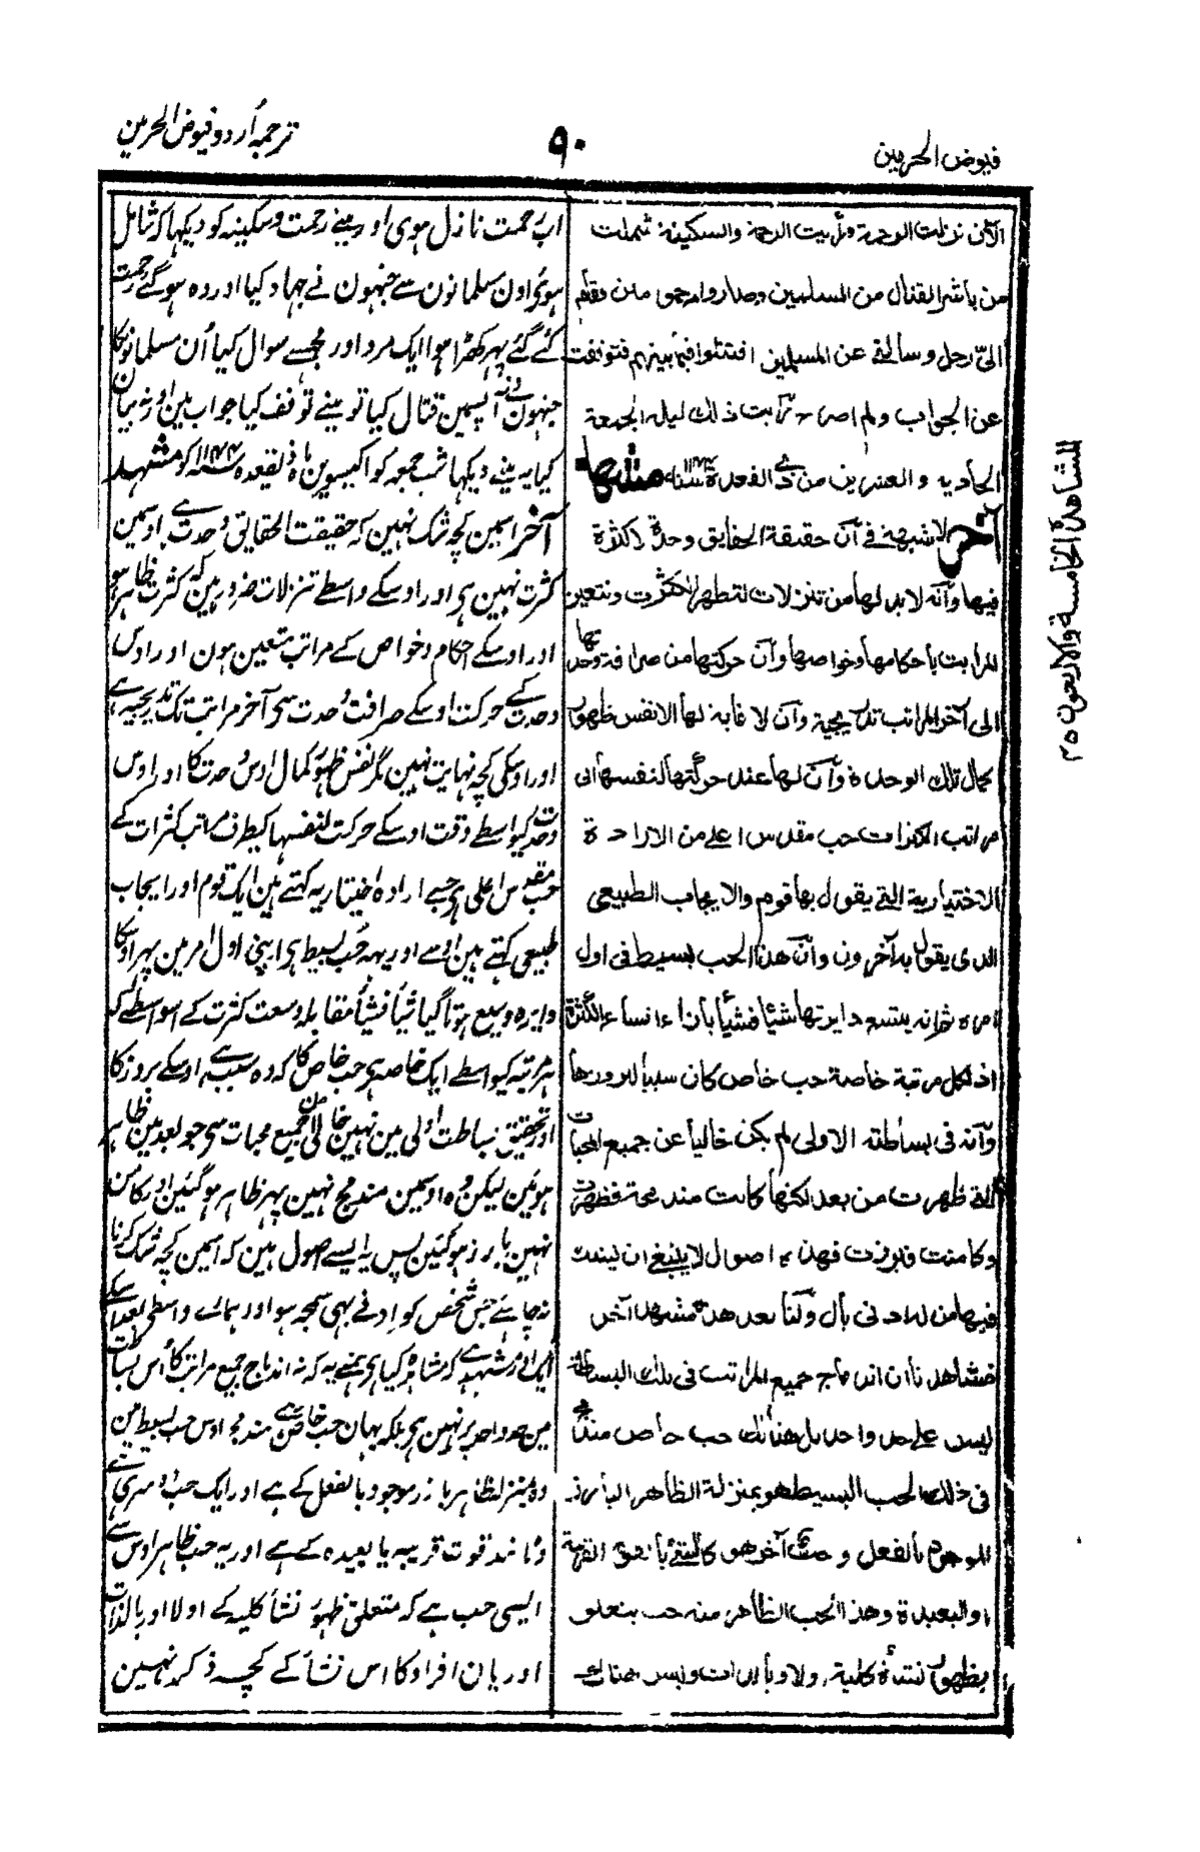 فیوض الحرمین
۹۰
ترجمہ اُردو فیوض الحرمین
الآن نزلت الرحمة ورأيت الرحمة والسكينة شملت
من باشر القتال من المسلمين وصاروا مرحومين فقام
الىّ رجل وسالنى عن المسلمين اقتتلوا فيما بينهم فتوقفت
عن الجواب ولم اصرح رأيت ذلك ليلة الجمعة
الحادية والعشرين من ذى القعدة سنه ۱۱۴۴ مشهد
آخر لا شبهة فى أن حقيقة الحقايق وحدة لا كثرة
فيها وأنه لا بد لها من تنزلات لتظهر الكثرت وتتعين
المراتب باحكامها وخواصها وأن حركتها من صرافة وحدتها
الى آخر المراتب تدريجية وأن لا غاية لها الا نفس ظهور
كمال تلك الوحدة وأن لها عند حركتها لنفسها الى
مراتب الكثرات حب مقدس اعلى من الارادة
الاختيارية التى يقول بها قوم والا يجاب الطبيعى
الذى يقول به آخرون وأن هذا الحب بسيط فى اول
امره ثم انه يتسع دايرتها شيئا فشيأ بازاء انساع الكثرة
اذ لكل مرتبة خاصة حب خاص كان سببا لبروزها
وأنه فى بساطته الاولى لم يكن خاليا عن جميع المحبات
التى ظهرت من بعد لكنها كانت مندمجة فظهرت
وكامنت فبرزت فهذه اصوال لا ينبغى ان يشك
فيها من له ادنى بال ولنا بعد هذا مشهد آخر
فشاهدنا ان اندماج جميع المراتب فى تلك البساطة
ليس على حد واحد بل هنالك حب خاص مندمج
فى ذلك الحب البسيط هو بمنزلة الظاهر البارز
الموجود بالفعل وحب آخر هو كالشئ بالقوة القريبة
او البعيدة وهذا الحب الظاهر منه حب يتعلق
بظهور نشأة كلية اولا وبالذات وليس هناك
اب رحمت نازل ہوی اور مینے رحمت وسکینہ کو دیکہا کہ شامل
ہوئی اون مسلمانون سے جنہون نے جہاد کیا اور وہ ہو گئے رحمت
کئے گئے پہر کھڑا ہوا ایک مرد اور مجھسے سوال کیا اُن مسلمانونکا
جنہون نے آپسمین قتال کیا تو مینے توقف کیا جواب مین اور نہ بیان
کیا یہ مینے دیکہا شب جمعہ کو اکیسوین ماہ ذیقعدہ ۱۱۴۴سنہ کو مشہد
آخر اسمین کچہ شک نہین کہ حقیقت الحقایق وحدت ہے اوسمین
کثرت نہین ہی اور اوسکے واسطے تنزلات ضرور ہین کہ کثرت ظاہر ہو
اور اوسکے احکام وخواص کے مراتب متعین ہون اور اوس
وحدت کے حرکت اوسکے صرافت وحدت سی آخر مراتب تک تدریجیہ ہے
اور اوسکی کچہ نہایت نہین مگر نفس ظہور کمال اوس وحدت کا اور اوس
وحدت کیواسطے وقت اوسکے حرکت لنفسہا کیطرف مراتب کثرات کے
حب مقدس اعلی ہی جسے ارادہ اختیاریہ کہتے ہین ایک قوم اور ایجاب
طبیعی کہتے ہین اوسے اور یہہ حب بسیط ہی اپنی اول امر مین پہر اوسکا
دایرہ وسیع ہوتا گیا شیًا فشیًا مقابلہ وسعت کثرت کے اسواسطے کہ
ہر مرتبہ کیواسطے ایک خاصہ ہی حب خاص کا کہ وہ سبب ہے اوسکے بروز کا
اور تحقیق بساطت اولی مین نہین خالی جمیع محبات سی جو بعد مین ظاہر
ہوئین لیکن وہ اوسمین مندمج نہین پہر ظاہر ہو گئین اور کامن
نہین بارز ہو گئین پس یہ ایسے اصول ہین کہ اسمین کچہ شک کرنا
نہ چاہئے جس شخص کو ادنے بہی سمجہ ہو اور ہمارے واسطی بعد اسکے
ایک اور مشہد ہے کہ مشاہدہ کیا ہی ہمنے یہ کہ نہ اندماج جمیع مراتب کا اُس بساطت
مین حد واحد پر نہین ہی بلکہ یہان حب خاص ہے مندمج اوس حب بسیط مین
وہ بمنزلہ ظاہر بارز موجود بالفعل کے ہے اور ایک حب دوسری ہے
وہ مانند قوت قریبہ یا بعیدہ کے ہے اور یہ حب ظاہر اوس سے
ایسی حب ہے کہ متعلق ظہور نشأ کلیہ کے اولا اور بالذات
اور یان افراد کا اس نشأ کے کچہہ ذکر نہین
المشاهدة الخامسة والاربعون ۴۵